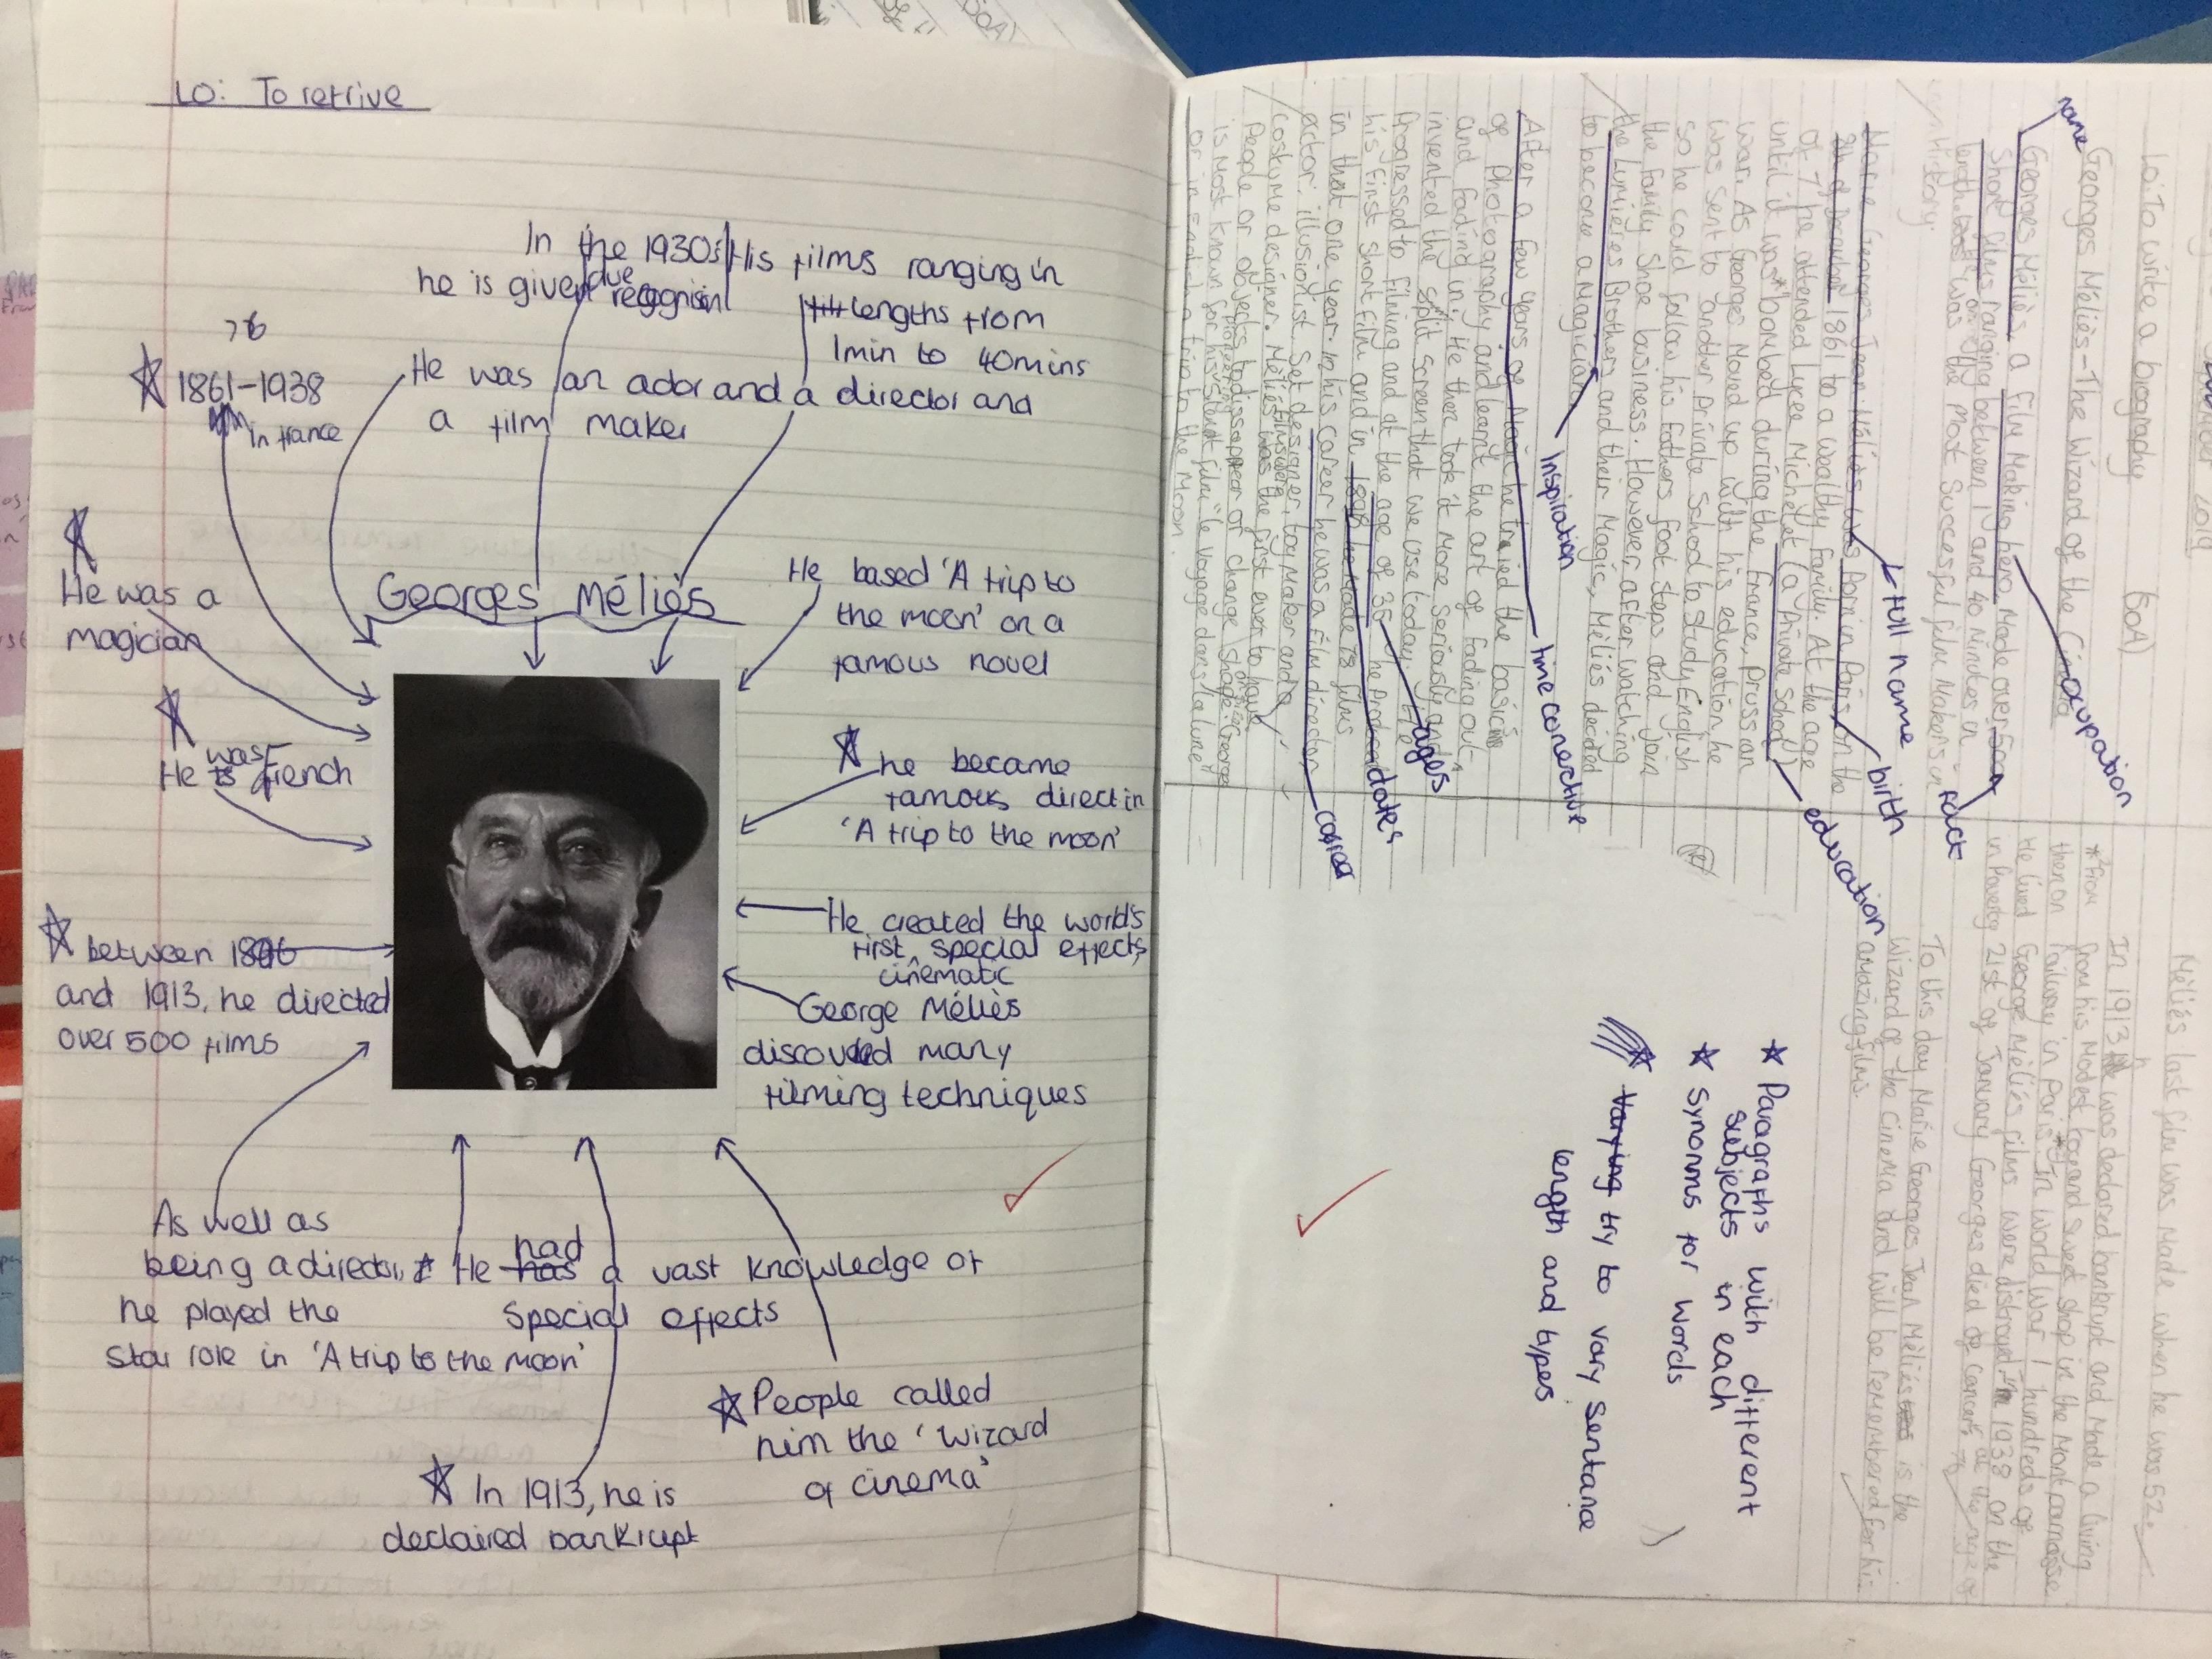 LO: To retrive
In the 1930s
he is given due recognision
His films ranging in
lengths from
1min to 40mins
76
1861-1938
in france
He was an actor and a director and
a film maker
He was a
magician
Georges Méliès
He based 'A trip to
the moon' on a
famous novel
He was french
he became
famous direct in
'A trip to the moon'
between 1896
and 1913, he directed
over 500 films
He created the world's
first cinematic special effects
George Méliès
many
filming techniques
As well as
being a director,
he played the
star role in 'A trip to the moon'
He had a vast knowledge of
special effects
People called
him the 'Wizard
of cinema'
In 1913, he is
declaired bankrupt
LO: To write a biography
Georges Méliès - The Wizard of the Cinema
name
Georges Méliès, a film Making hero, Made over 500
Short films ranging between 1 and 40 Minutes
was the Most Successful film Makers in
History.
occupation
fact
Marie Georges Jean Méliès was Born in Paris on the
1861 to a wealthy family. At the age
of 7 he attended Lycee Michelet (a Private School)
until it was bombed during the France, Prussian
war. As Georges Moved up with his education, he
was sent to another Private School to Study English
so he could follow his fathers foot steps and join
the family Shoe business. However, after watching
the Lumières Brothers and their Magic, Méliès decided
to become a Magician.
full name
birth
education
Inspiration
After a few years of Magic he tried the basics
of Photography and learnt the art of fading out
and fading in. He then took it More Seriously and
invented the split Screen that we use today. He
Progressed to filming and at the age of 35 he Produced
his first short film and in 1896 he Made 78 films
in that one year. In his career he was a film director,
actor, illusionist, Set designer, toy Maker and a
costume designer. Méliès films were the first ever to have
People or objects to disappear or change shape. George
is Most known for his film "le Voyage dans la lune"
or in English a trip to the Moon.
time conective
ages
dates
career
Méliès last film was Made when he was 52.
In 1913 he was declared bankrupt and Made a living
from his Modest toy and Sweet Shop in the Montparnasse
railway in Paris. In World War 1 hundreds of
George Méliès films were In 1938 on the
21st of January Georges died of cancer at the age of 76
*From
then on
He lived
in Poverty
To this day Marie Georges Jean Méliès is the
Wizard of the Cinema and will be remembered for his
amazing films.
Paragraphs with different
subjects in each
Synonms for words
Varying try to vary sentance
length and types